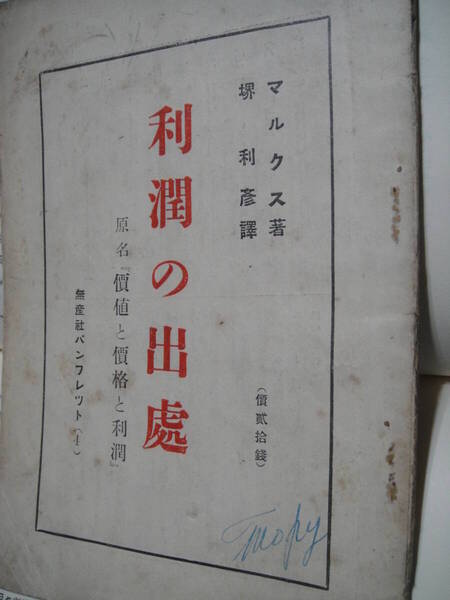 マルクス著
堺利彦譯
(價貳拾錢)
利潤の出處
原名『價値と價格と利潤』
無産社パンフレット